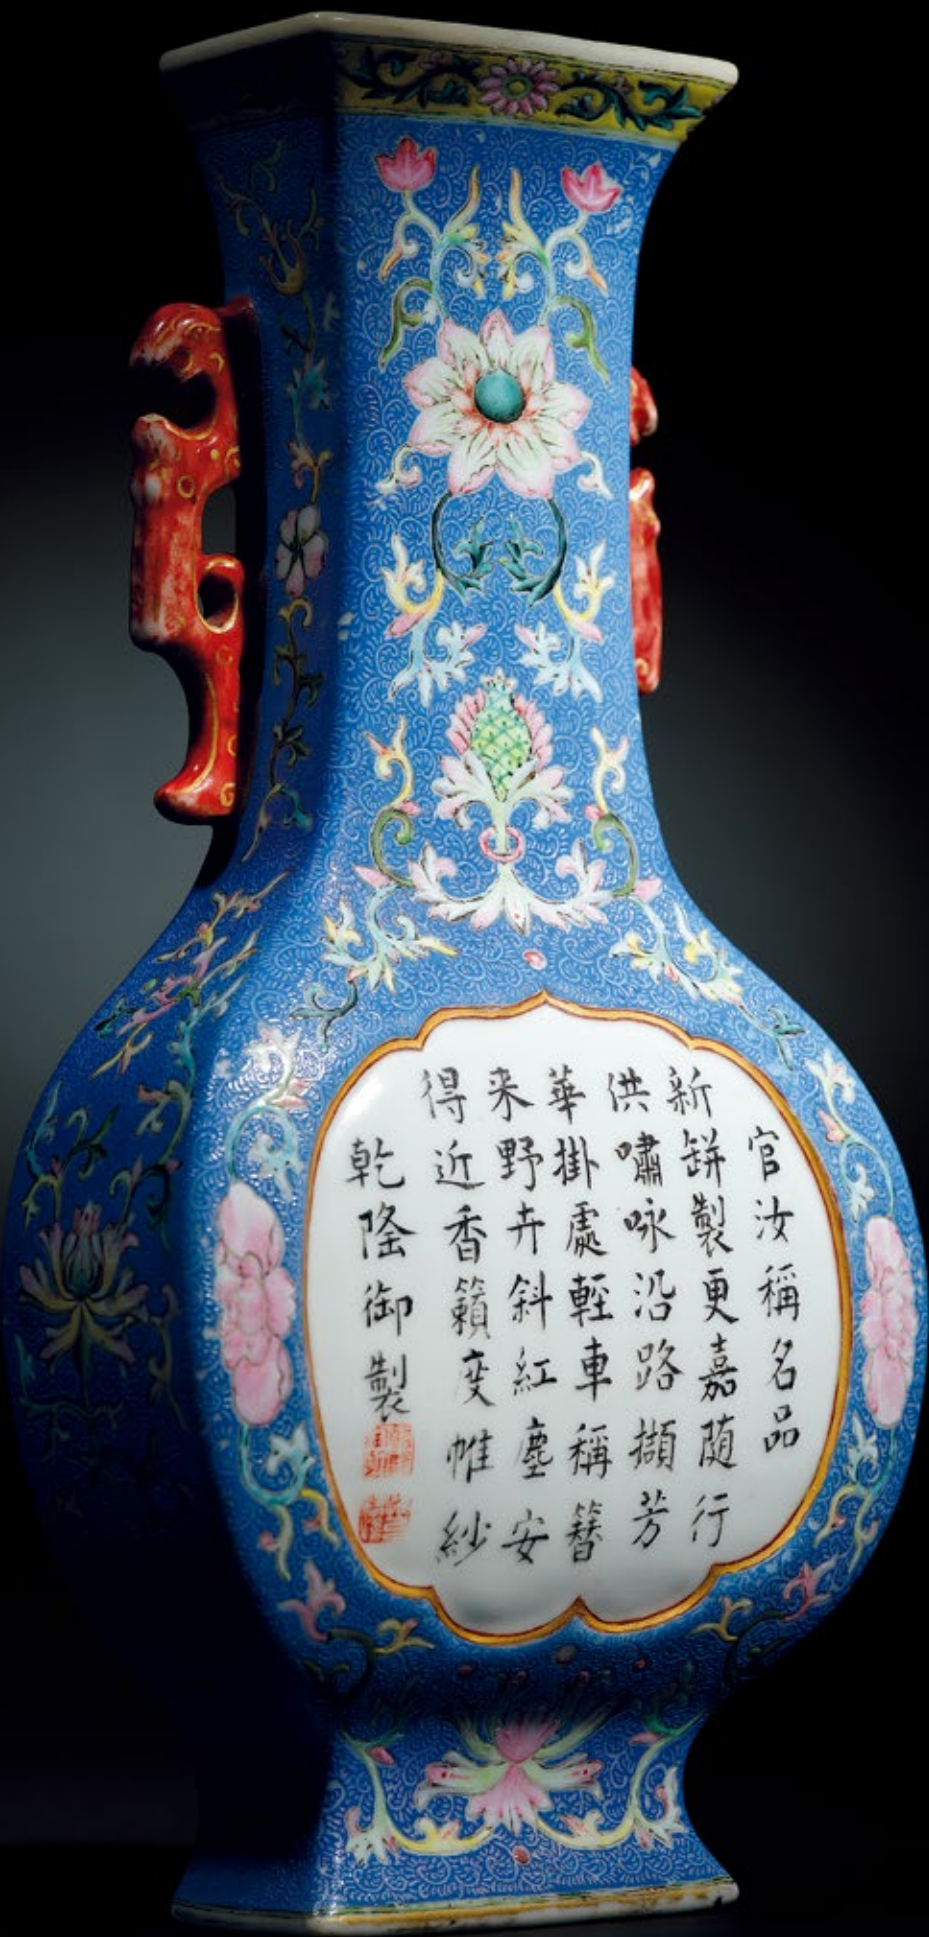 官汝稱名品
新缾製更嘉隨行
供嘯咏沿路擷芳
華掛處輕車稱簪
来野卉斜紅塵安
得近香籟度帷紗
乾隆御製